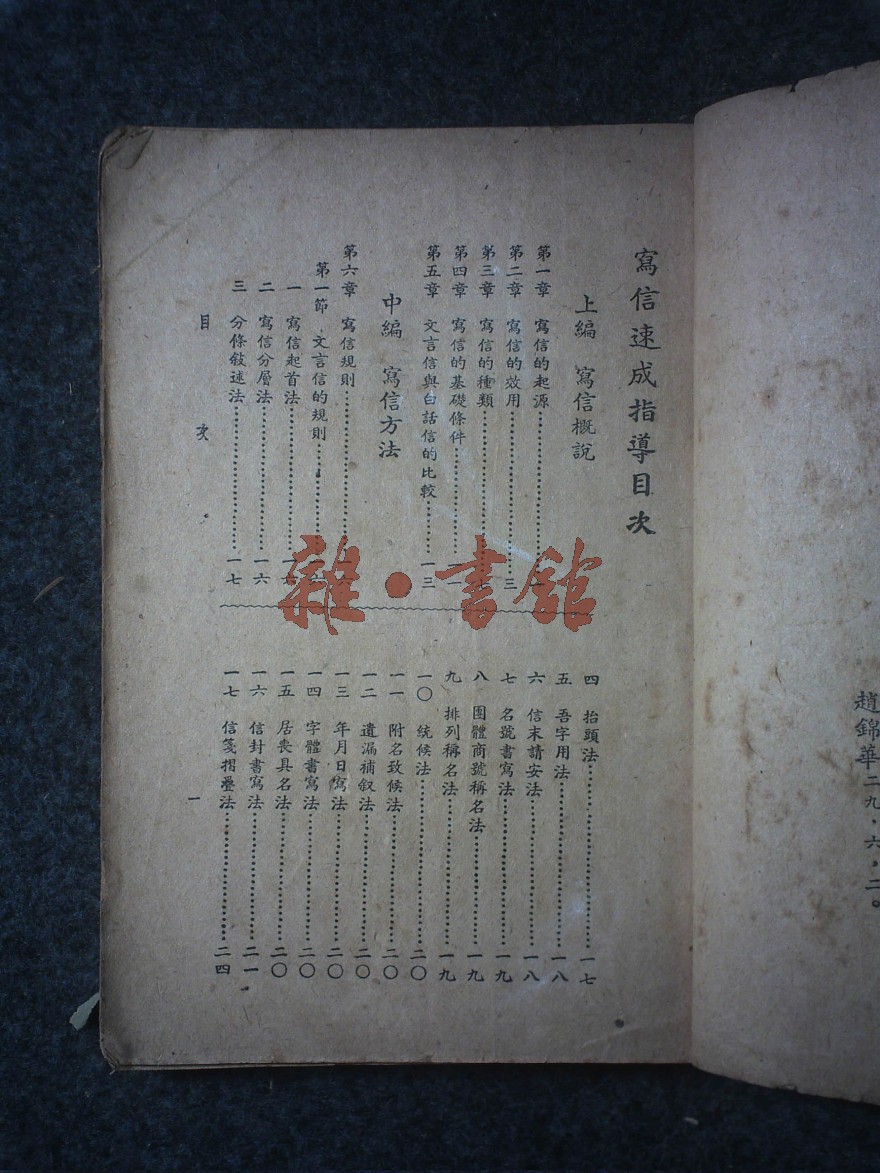 趙錦華二九，六，二。
寫信速成指導目次
上編　寫信概說
第一章　寫信的起源
第二章　寫信的效用……三
第三章　寫信的種類
第四章　寫信的基礎條件……一一
第五章　文言信與白話信的比較……一三
中編　寫信方法
第六章　寫信規則
第一節　文言信的規則
一　寫信起首法
二　寫信分層法……一六
三　分條敍述法……一七
四　抬頭法……一七
五　吾字用法……一八
六　信末請安法……一八
七　名號書寫法……一九
八　團體商號稱名法……一九
九　排列稱名法……一九
一〇　統候法……二〇
一一　附名致候法……二〇
一二　遺漏補叙法……二〇
一三　年月日寫法……二〇
一四　字體書寫法……二〇
一五　居喪具名法……二〇
一六　信封書寫法……二一
一七　信箋摺疊法……二四
目次
一
雜·書館